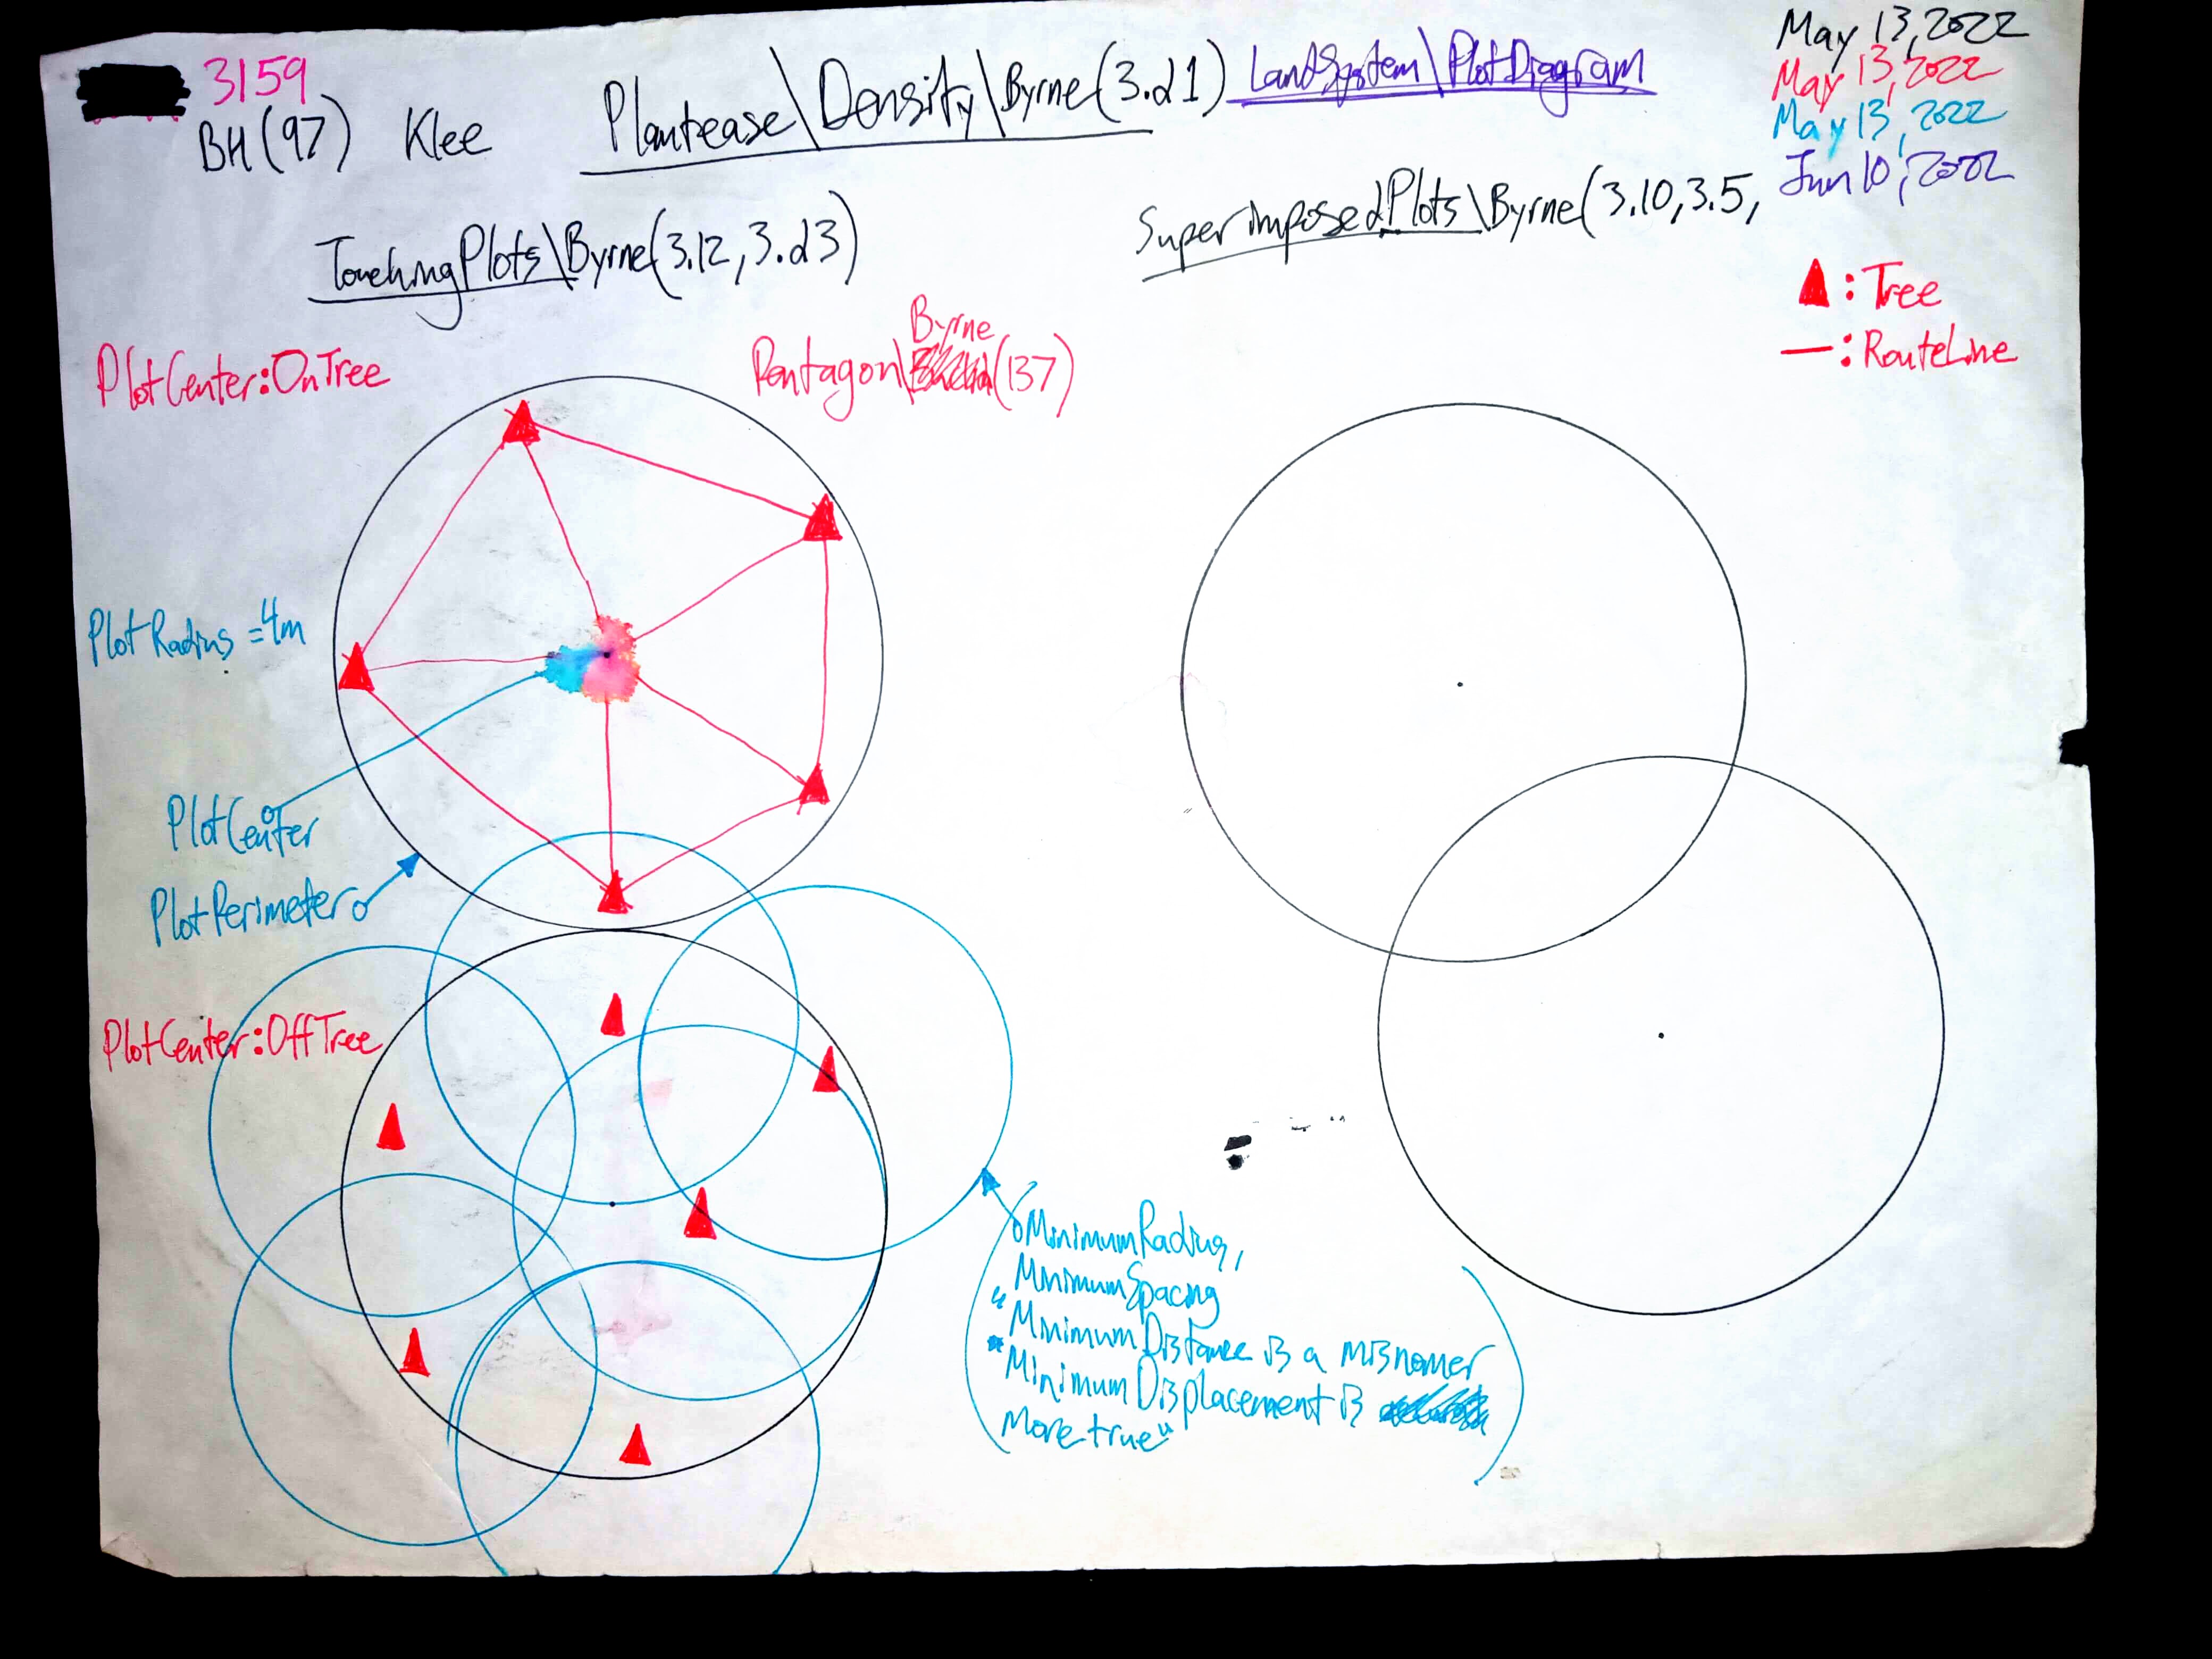 3159
BH(97) Klee
Plantease\Density\Byrne(3.d1) LandSystem\PlotDiagram
May 13, 2022
May 13, 2022
May 13, 2022
Jun 10, 2022
TouchingPlots\Byrne(3.12, 3.d3)
SuperimposedPlots\Byrne(3.10, 3.5,
▲: Tree
—: RouteLine
PlotCenter:OnTree
Byrne
Pentagon\(137)
PlotRadius = 4m
PlotCenter
PlotPerimeter
PlotCenter:OffTree
(MinimumRadius,
MinimumSpacing
"MinimumDistance is a misnomer
MinimumDisplacement is
More true")